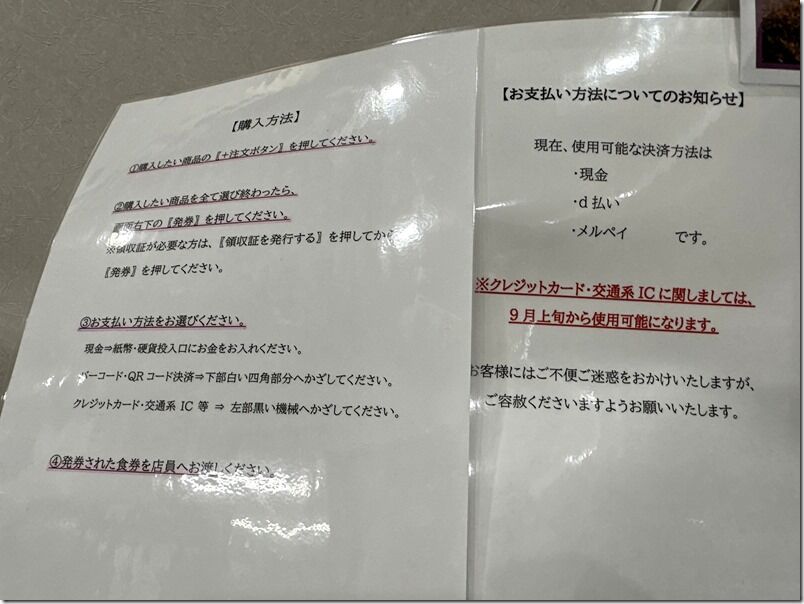 【購入方法】
①購入したい商品の『＋注文ボタン』を押してください。
②購入したい商品を全て選び終わったら、
画面右下の『発券』を押してください。
※領収証が必要な方は、『領収証を発行する』を押してから
『発券』を押してください。
③お支払い方法をお選びください。
現金⇒紙幣・硬貨投入口にお金をお入れください。
バーコード・QRコード決済⇒下部白い四角部分へかざしてください。
クレジットカード・交通系 IC 等 ⇒ 左部黒い機械へかざしてください。
④発券された食券を店員へお渡しください。
【お支払い方法についてのお知らせ】
現在、使用可能な決済方法は
・現金
・d払い
・メルペイ です。
※クレジットカード・交通系 IC に関しましては、
9月上旬から使用可能になります。
お客様にはご不便ご迷惑をおかけいたしますが、
ご容赦くださいますようお願いいたします。